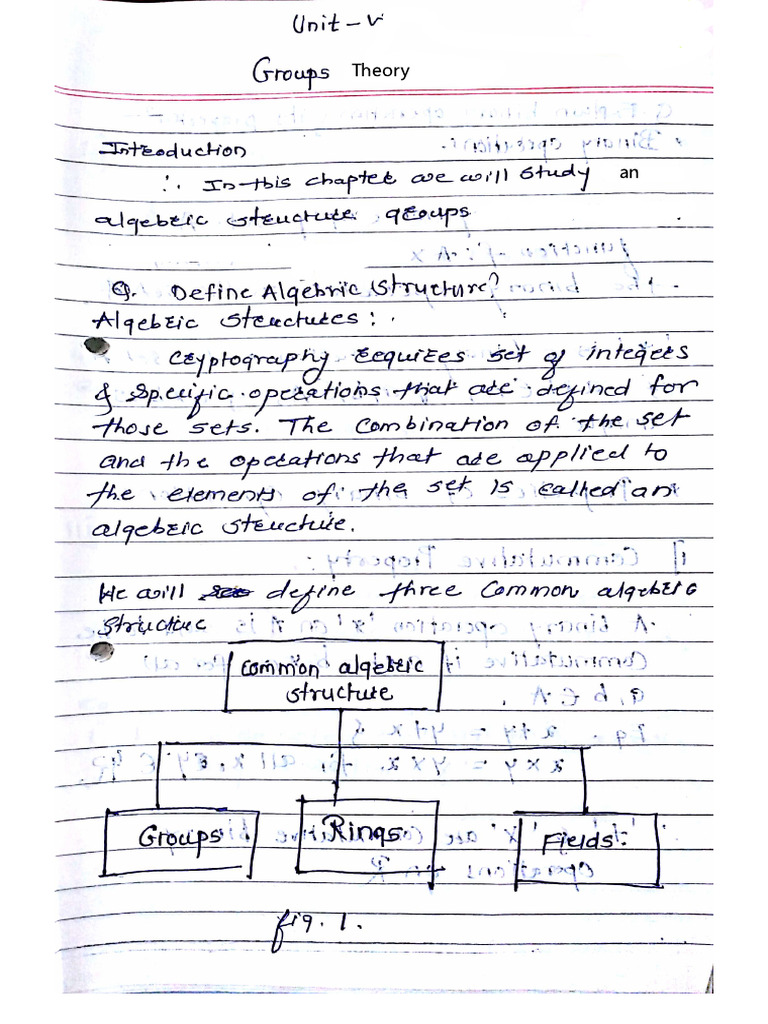 Unit - V
Groups Theory
Introduction
∴ In this chapter we will study an
algebric structure groups
Q. Define Algebric Structure?
Algebric structures :.
Cryptography requires set of integers
& specific operations that are defined for
those sets. The Combination of the set
and the operations that are applied to
the elements of the set is called an
algebric structure.
We will define three Common algebric
Structure
Common algebric
structure
Groups Rings Fields
fig. 1.